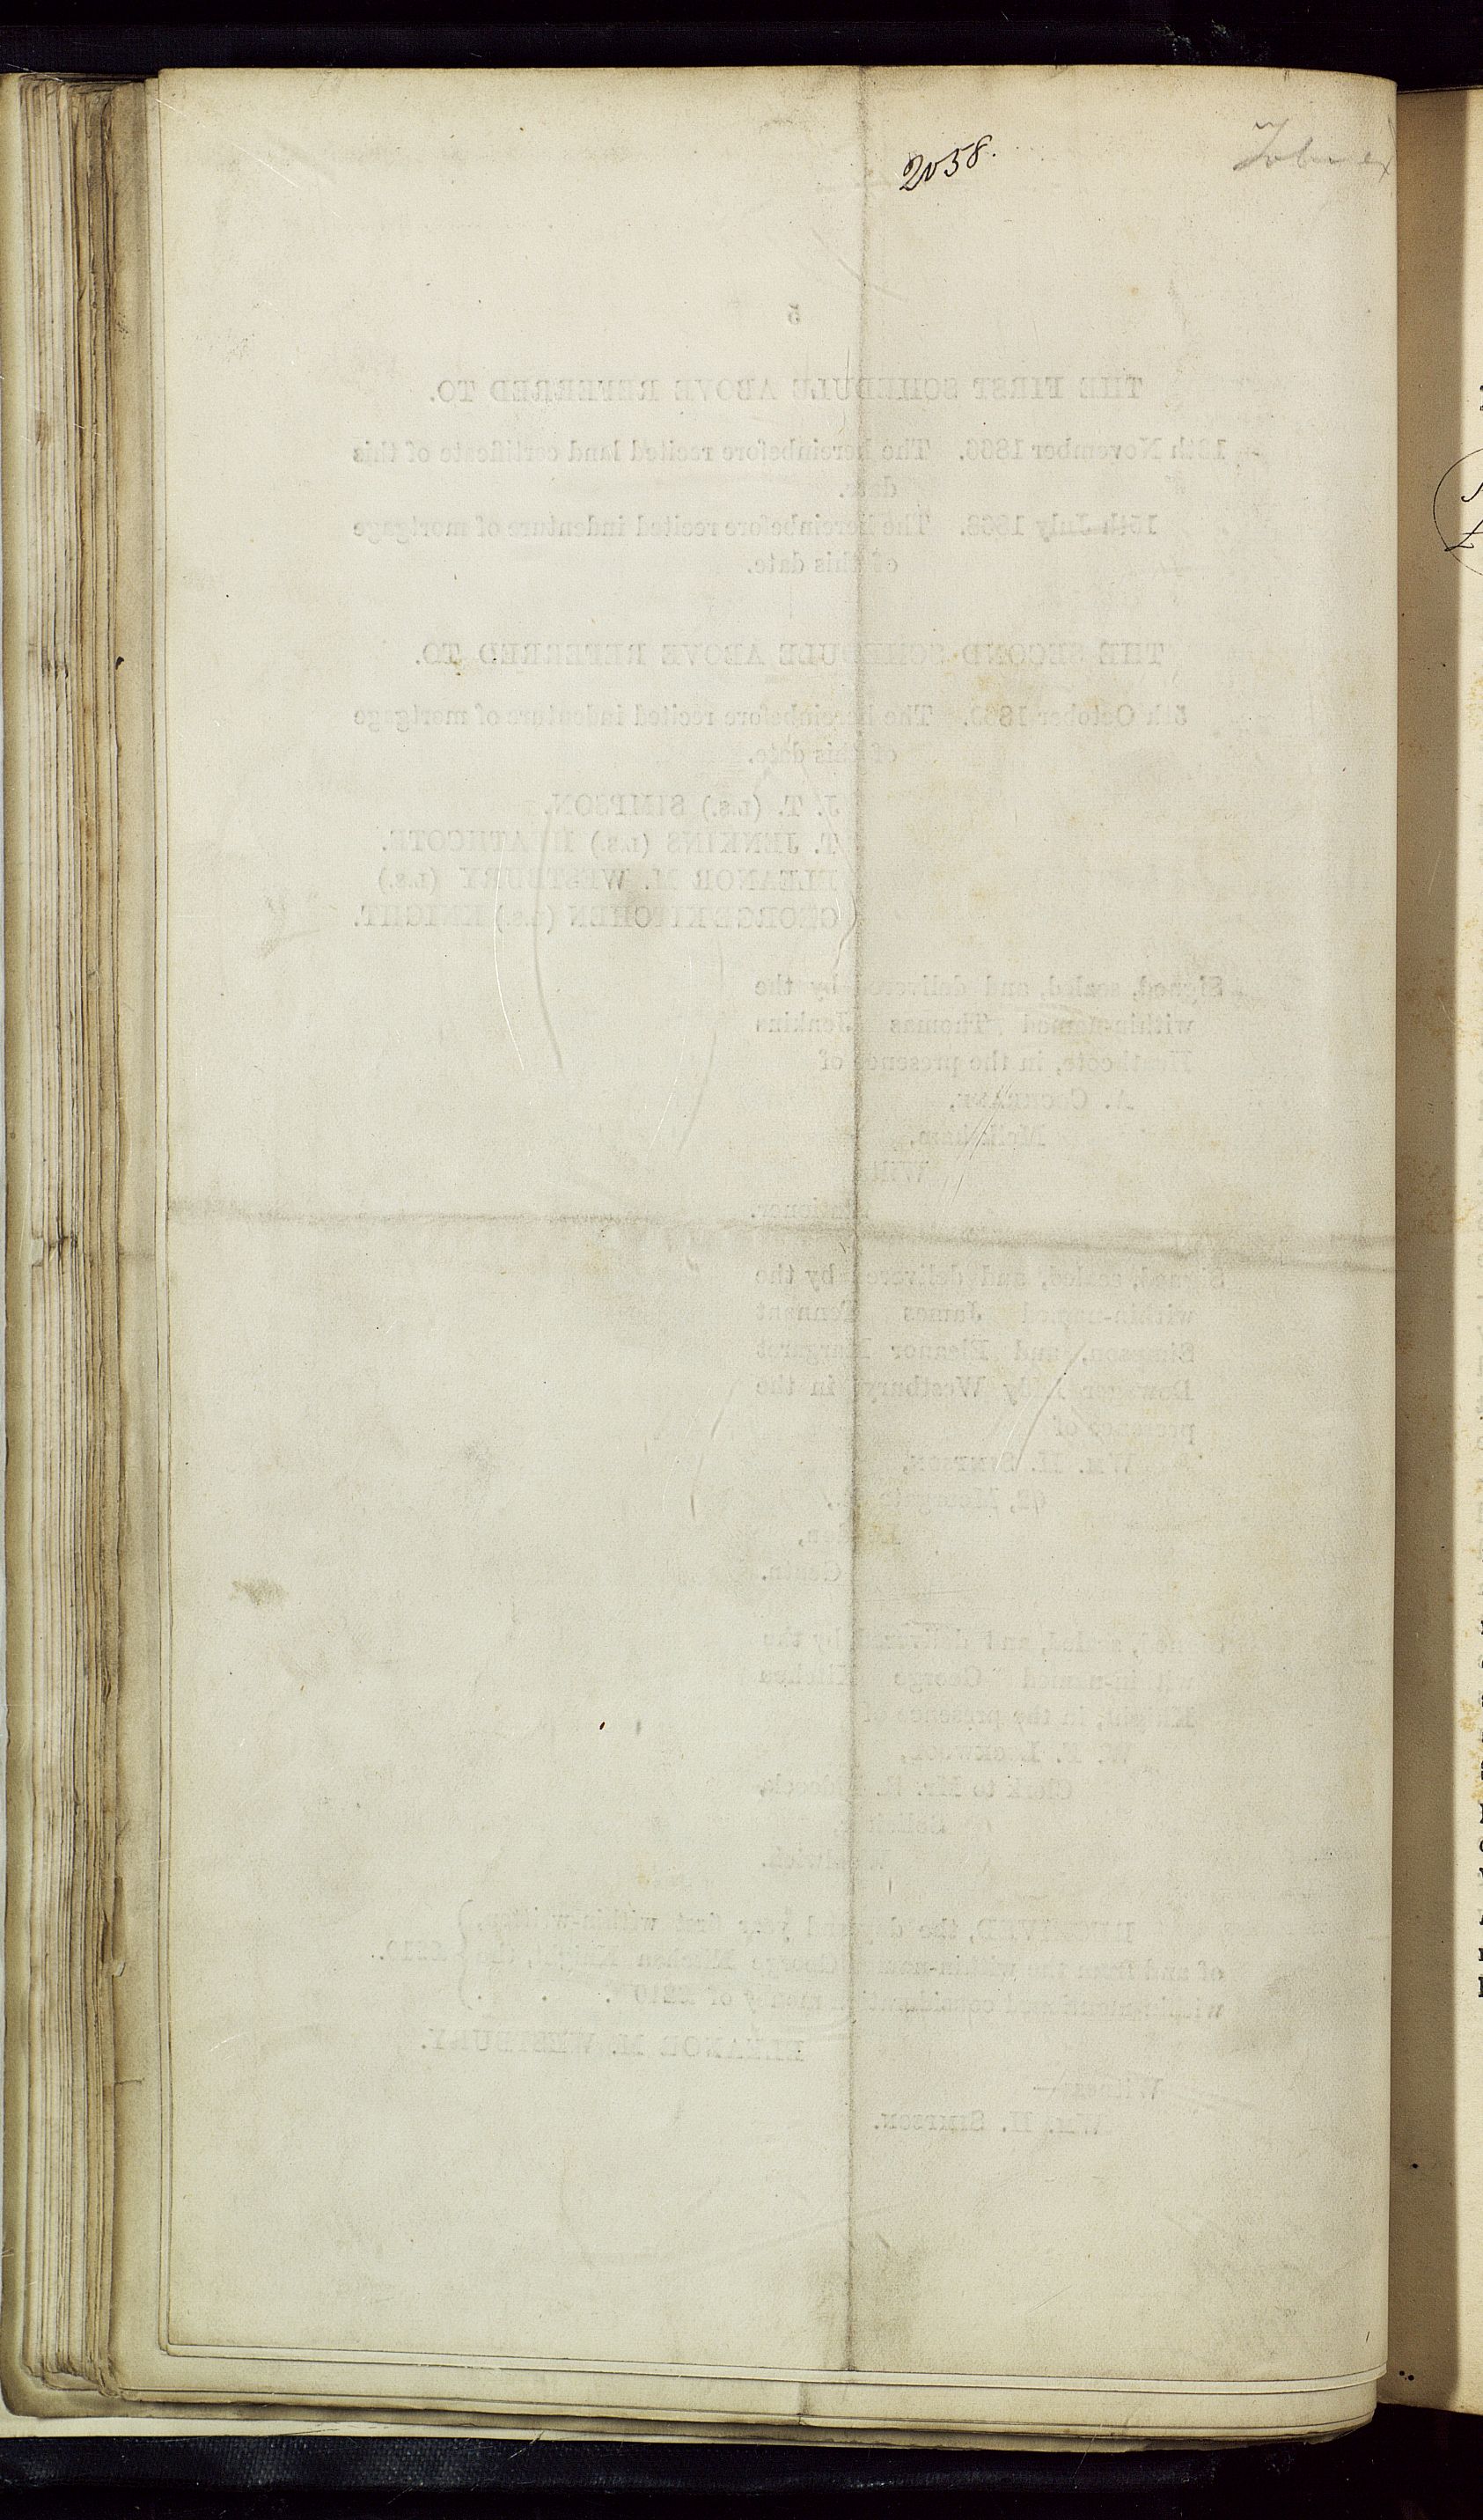 2058.
5
THE FIRST SCHEDULE ABOVE REFERRED TO.
November 1866. The hereinbefore recited land certificate of this
date.
15th July 1868. The hereinbefore recited indenture of mortgage
of this date.
THE SECOND SCHEDULE ABOVE REFERRED TO.
5th October The hereinbefore recited indenture of mortgage
of this date.
J. T. (L.S.) SIMPSON.
T. JENKINS (L.S.) HEATHCOTE.
ELEANOR M. WESTBURY (L.S.)
GEORGE KITCHEN (L.S.) KNIGHT.
Signed, sealed, and delivered by the
within-named Thomas Jenkins
Heathcote, in the presence of
A. COCHRANE,
Melksham,
Wilts
Stationer.
Signed, sealed, and delivered by the
within-named James Tennant
Simpson, and Eleanor Margaret
Dowager Lady Westbury, in the
presence of
WM. H. SIMPSON,
Moorgate
London,
Gentn.
Signed, sealed, and delivered by the
within-named George Kitchen
Knight, in the presence of
W. F. LOCKWOOD,
Clerk to Mr.
Solicitor,
Woolwich.
RECEIVED, the day and year first within-written,
of and from the within-named George Kitchen Knight, the £210.
within-mentioned consideration money of £210 . . .
ELEANOR M. WESTBURY.
Witness—
WM. H. SIMPSON.